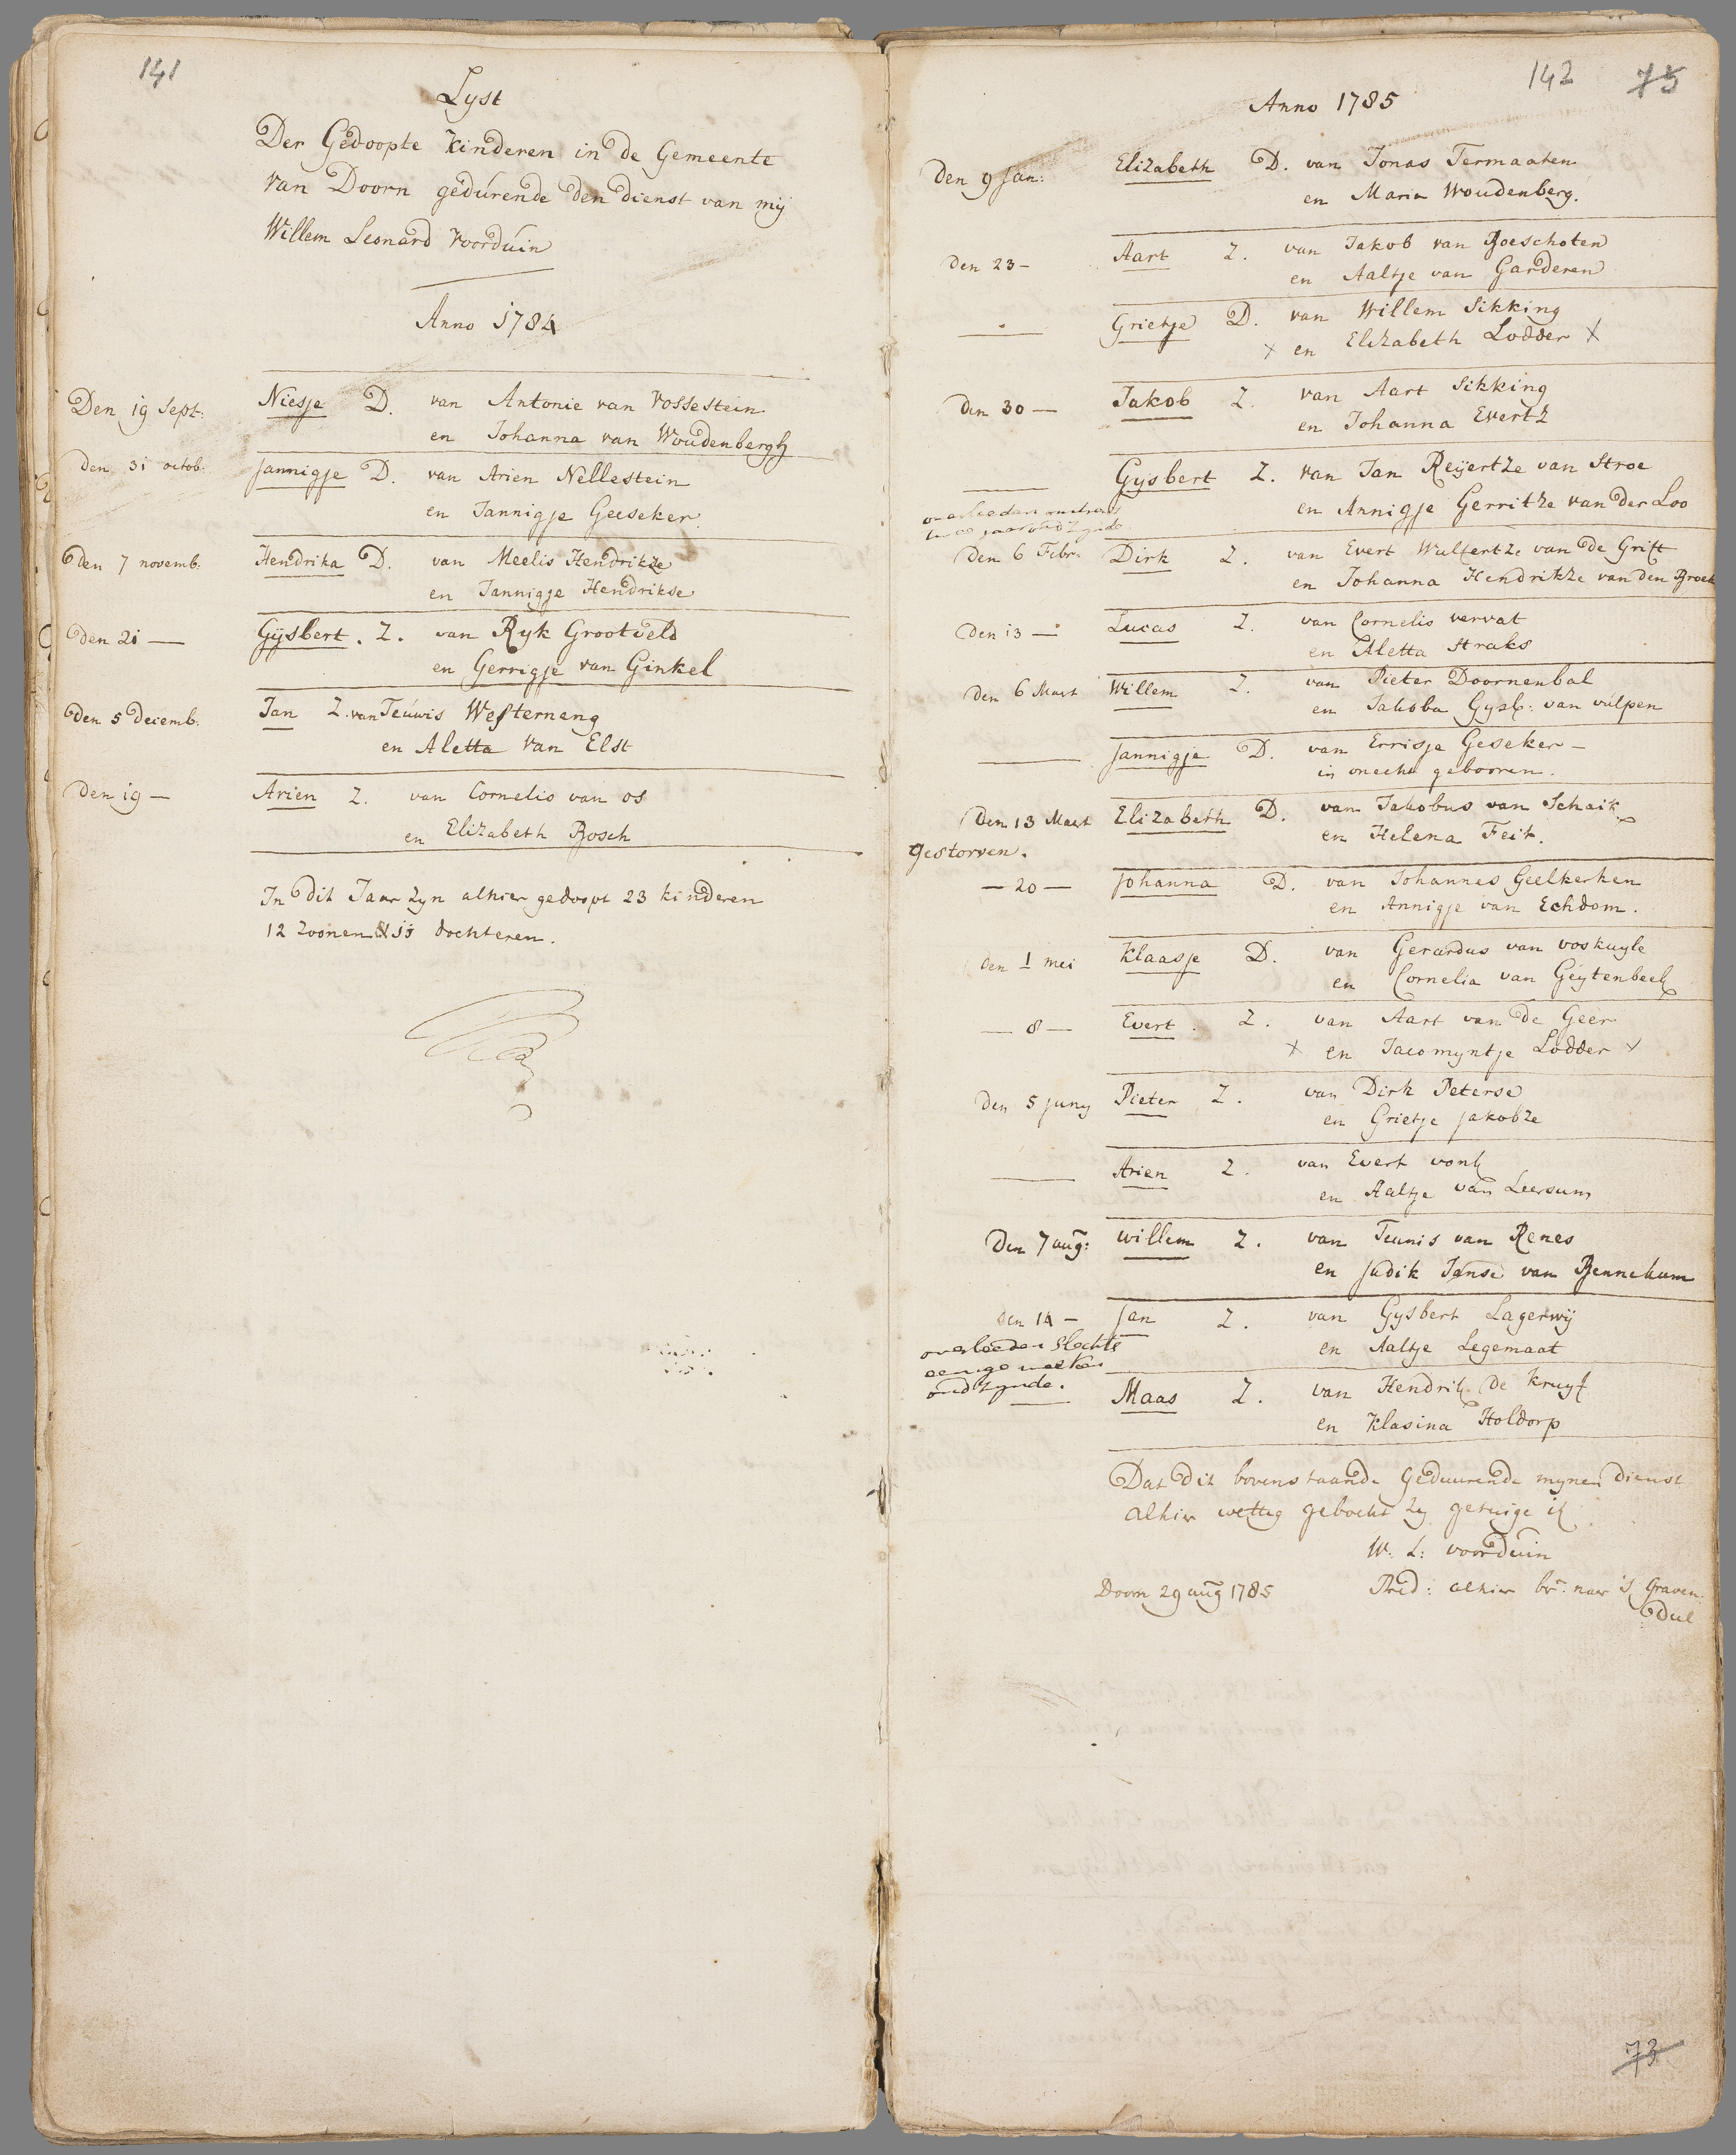 141
Lyst
Der Gedoopte Kinderen in de Gemeente
van Doorn gedurende den dienst van mij
Willem Leonard Voorduin
Anno 1784
Den 19 Sept: Niesje D. van Antonie van Vossestein
en Johanna van Woudenbergh
den 31 octob: Jannigje D. van Arien Nellestein
en Jannigje Geeseker
den 7 novemb: Hendrika D. van Meelis Hendrikze
en Jannigje Hendrikse
den 21 — Gÿsbert. Z. van Ryk Grootveld
en Gerrigje van Ginkel
den 5 decemb: Jan Z. van Teuwis Westerneng
en Aletta van Elst
den 19 — Arien Z. van Cornelis van os
en Elizabeth Bosch
In dit Jaar zyn alhier gedoopt 23 kinderen
12 zoonen & 11 dochteren.
142 75
Anno 1785
Den 9 Jan: Elizabeth D. van Jonas Termaaten
en Maria Woudenberg.
den 23 — Aart Z. van Jakob van Boeschoten
en Aaltje van Garderen
— Grietje D. van Willem Sikking
x en Elizabeth Lodder x
den 30 — Jakob Z. van Aart Sikking
en Johanna Evertz
— Gysbert Z. van Jan Reÿertze van Stroe
en Annigje Gerritze van der Loo
overleeden
den 6 Febr: Dirk Z. van Evert Wulfertze van de Grift
en Johanna Hendrikze van den Broek
den 13 — Lucas Z. van Cornelis vervat
en Aletta Straks
den 6 Mart Willem Z. van Pieter Doornenbal
en Jakoba Gysb: van vulpen
— Jannigje D. van Errisje Geseker —
in onecht gebooren.
Den 13 Mart Elizabeth D. van Jakobus van Schaik
en Helena Feit.
gestorven.
— 20 — Johanna D. van Johannes Geelkerken
en Annigje van Echdom.
den 1 mei Klaasje D. van Gerardus van voskuyle
en Cornelia van Geÿtenbeek
— 8 — Evert. Z. van Aart van de Geer
x en Jacomyntje Lodder x
den 5 juny Pieter Z. van Dirk Peterse
en Grietje Jakobze
— Arien Z. van Evert vonk
en Aaltje van Leersum
Den 7 aug: Willem Z. van Teunis van Renes
en Judik Janse van Bennekum
den 14 — Jan Z. van Gysbert Lagerwij
en Aaltje Legemaat
overleeden slechts
eenige weeken
oud zynde.
— Maas Z. van Hendrik de Kruyf
en Klasina Holdorp
Dat dit bovenstaande Geduurende mynen dienst
alhier wettig geboekt zy getuige ik
W: L: voorduin
Doorn 29 aug 1785 Pred: alhier br: naar 's Graven:
deel
73